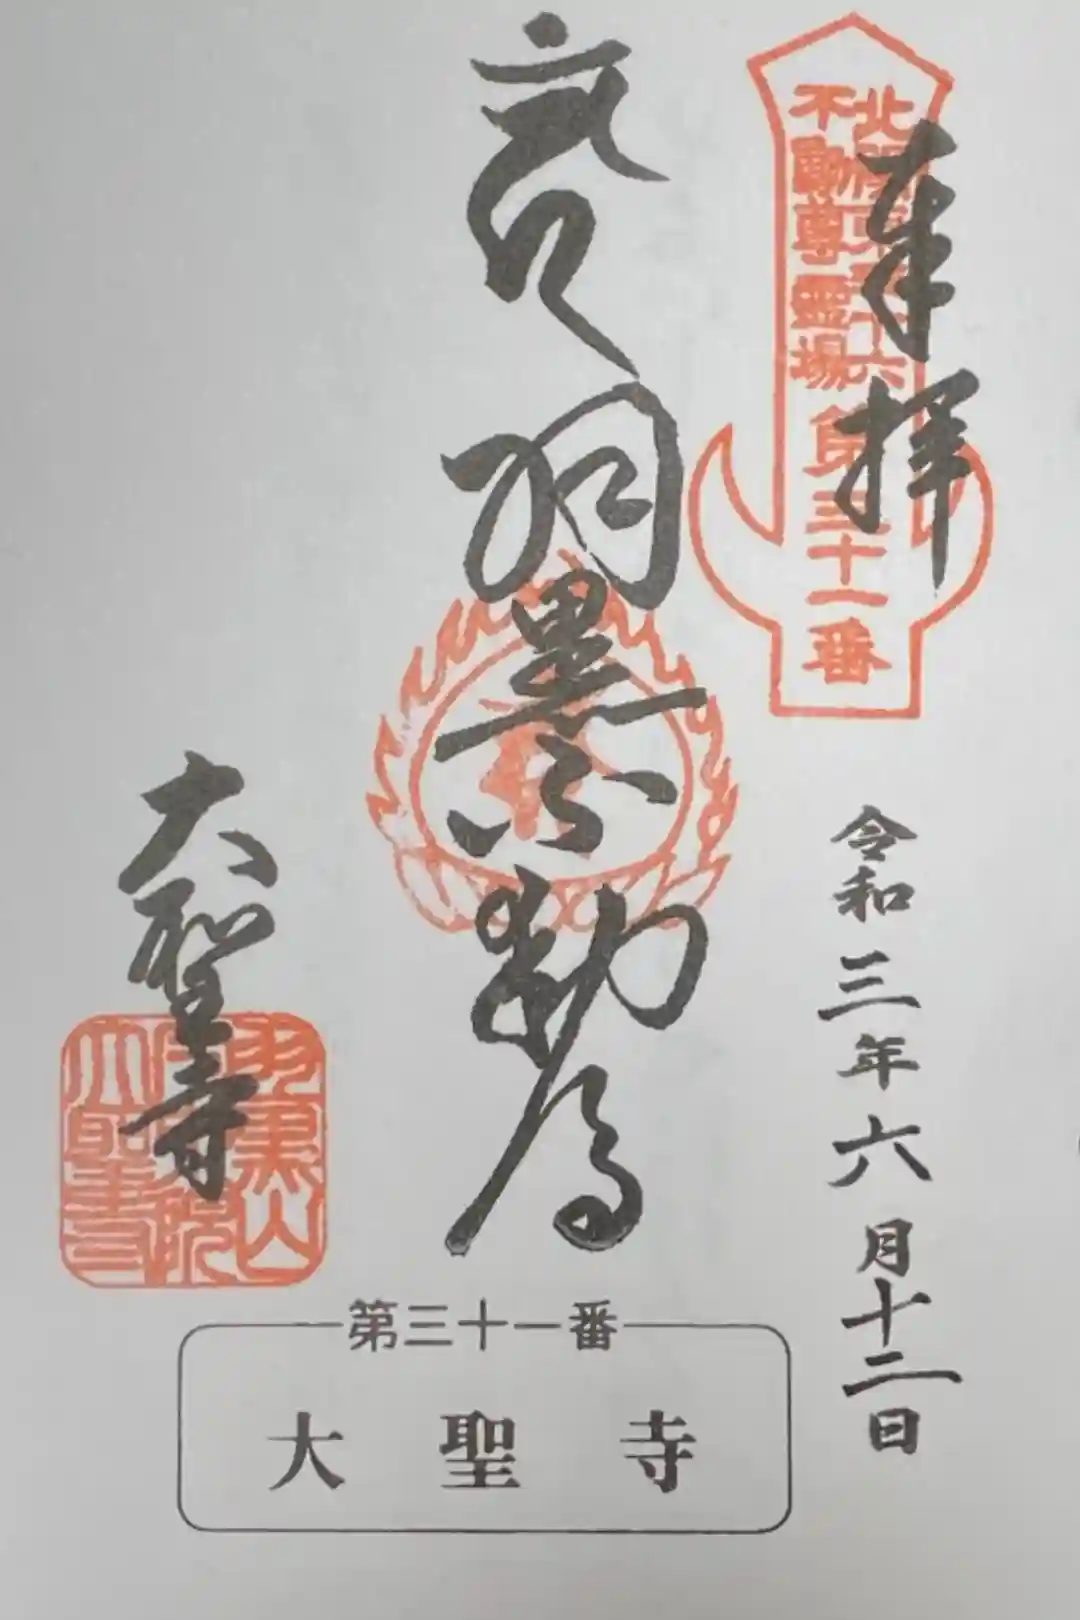 奉拝
北関東三十六
不動尊霊場
第三十一番
令和三年六月十二日
羽黒不動
大聖寺
羽黒山
大聖寺
第三十一番
大聖寺